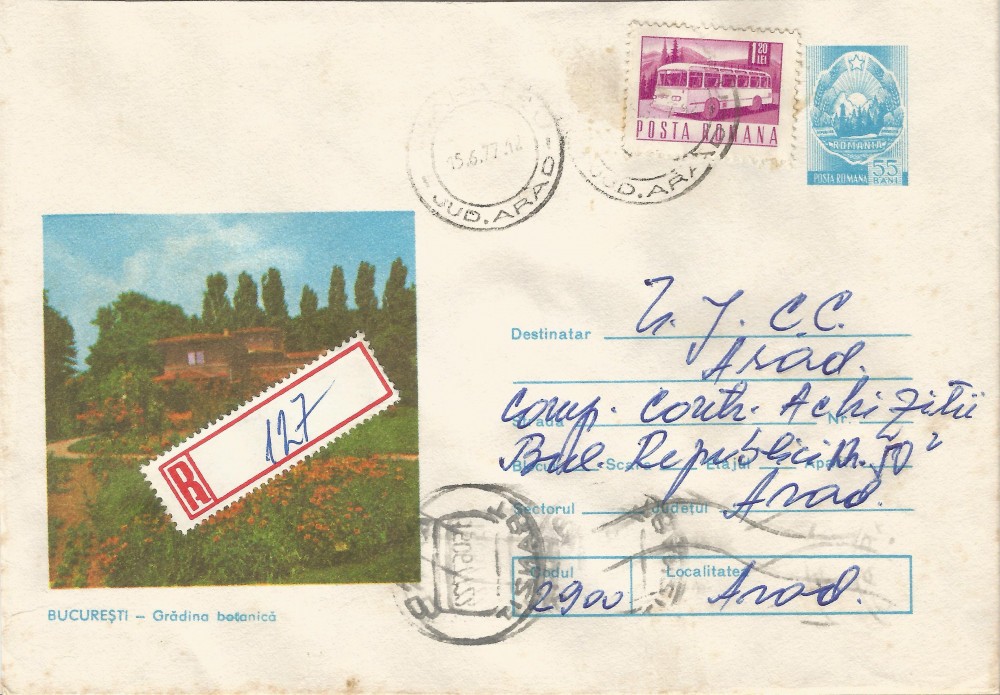 1.20
LEI
POSTA ROMANA
ROMANIA
55
BANI
POSTA ROMANA
15.6.77
JUD. ARAD
JUD. ARAD
Destinatar I. J. C. C.
Arad.
Strada Comp. Contr. Achizitii Nr.
Blocul Scara Etajul Apart.
Bul. Republicii Nr. 50
Sectorul Județul Arad.
Codul 2900 Localitatea Arad.
R 127
BUCUREȘTI – Grădina botanică